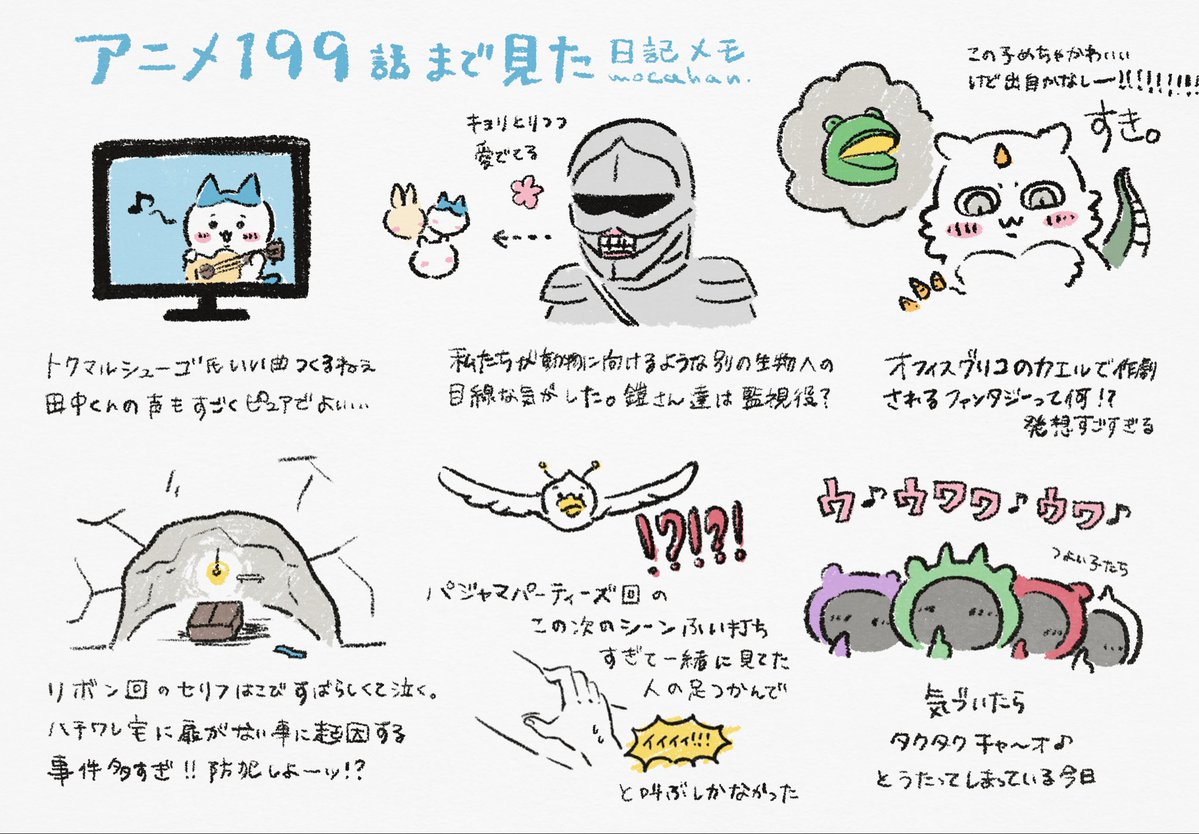 アニメ199話まで見た 日記メモ
mocahan.
トクマルシューゴ氏いい曲つくるねえ
田中くんの声もすごくピュアでよい…
キョリとりつつ
愛でてる
私たちが動物に向けるような別の生物への
目線な気がした。鎧さん達は監視役?
この子めちゃかわいい
けど出自かなしー!!!!!!!!!
すき。
オフィスグリコのカエルで作劇
されるファンタジーって何!?
発想すごすぎる
リボン回のセリフはこびすばらしくて泣く。
ハチワレ宅に扉がない事に起因する
事件多すぎ!!防犯しよーッ!?
!?!?!
パジャマパーティーズ回の
この次のシーンふい打ち
すぎて一緒に見てた
人の足つかんで
イイイイ!!!
と叫ぶしかなかった
ウ♪ウワワ♪ウワ♪
つよい子たち
気づいたら
タクタクチャ〜オ♪
とうたってしまっている今日